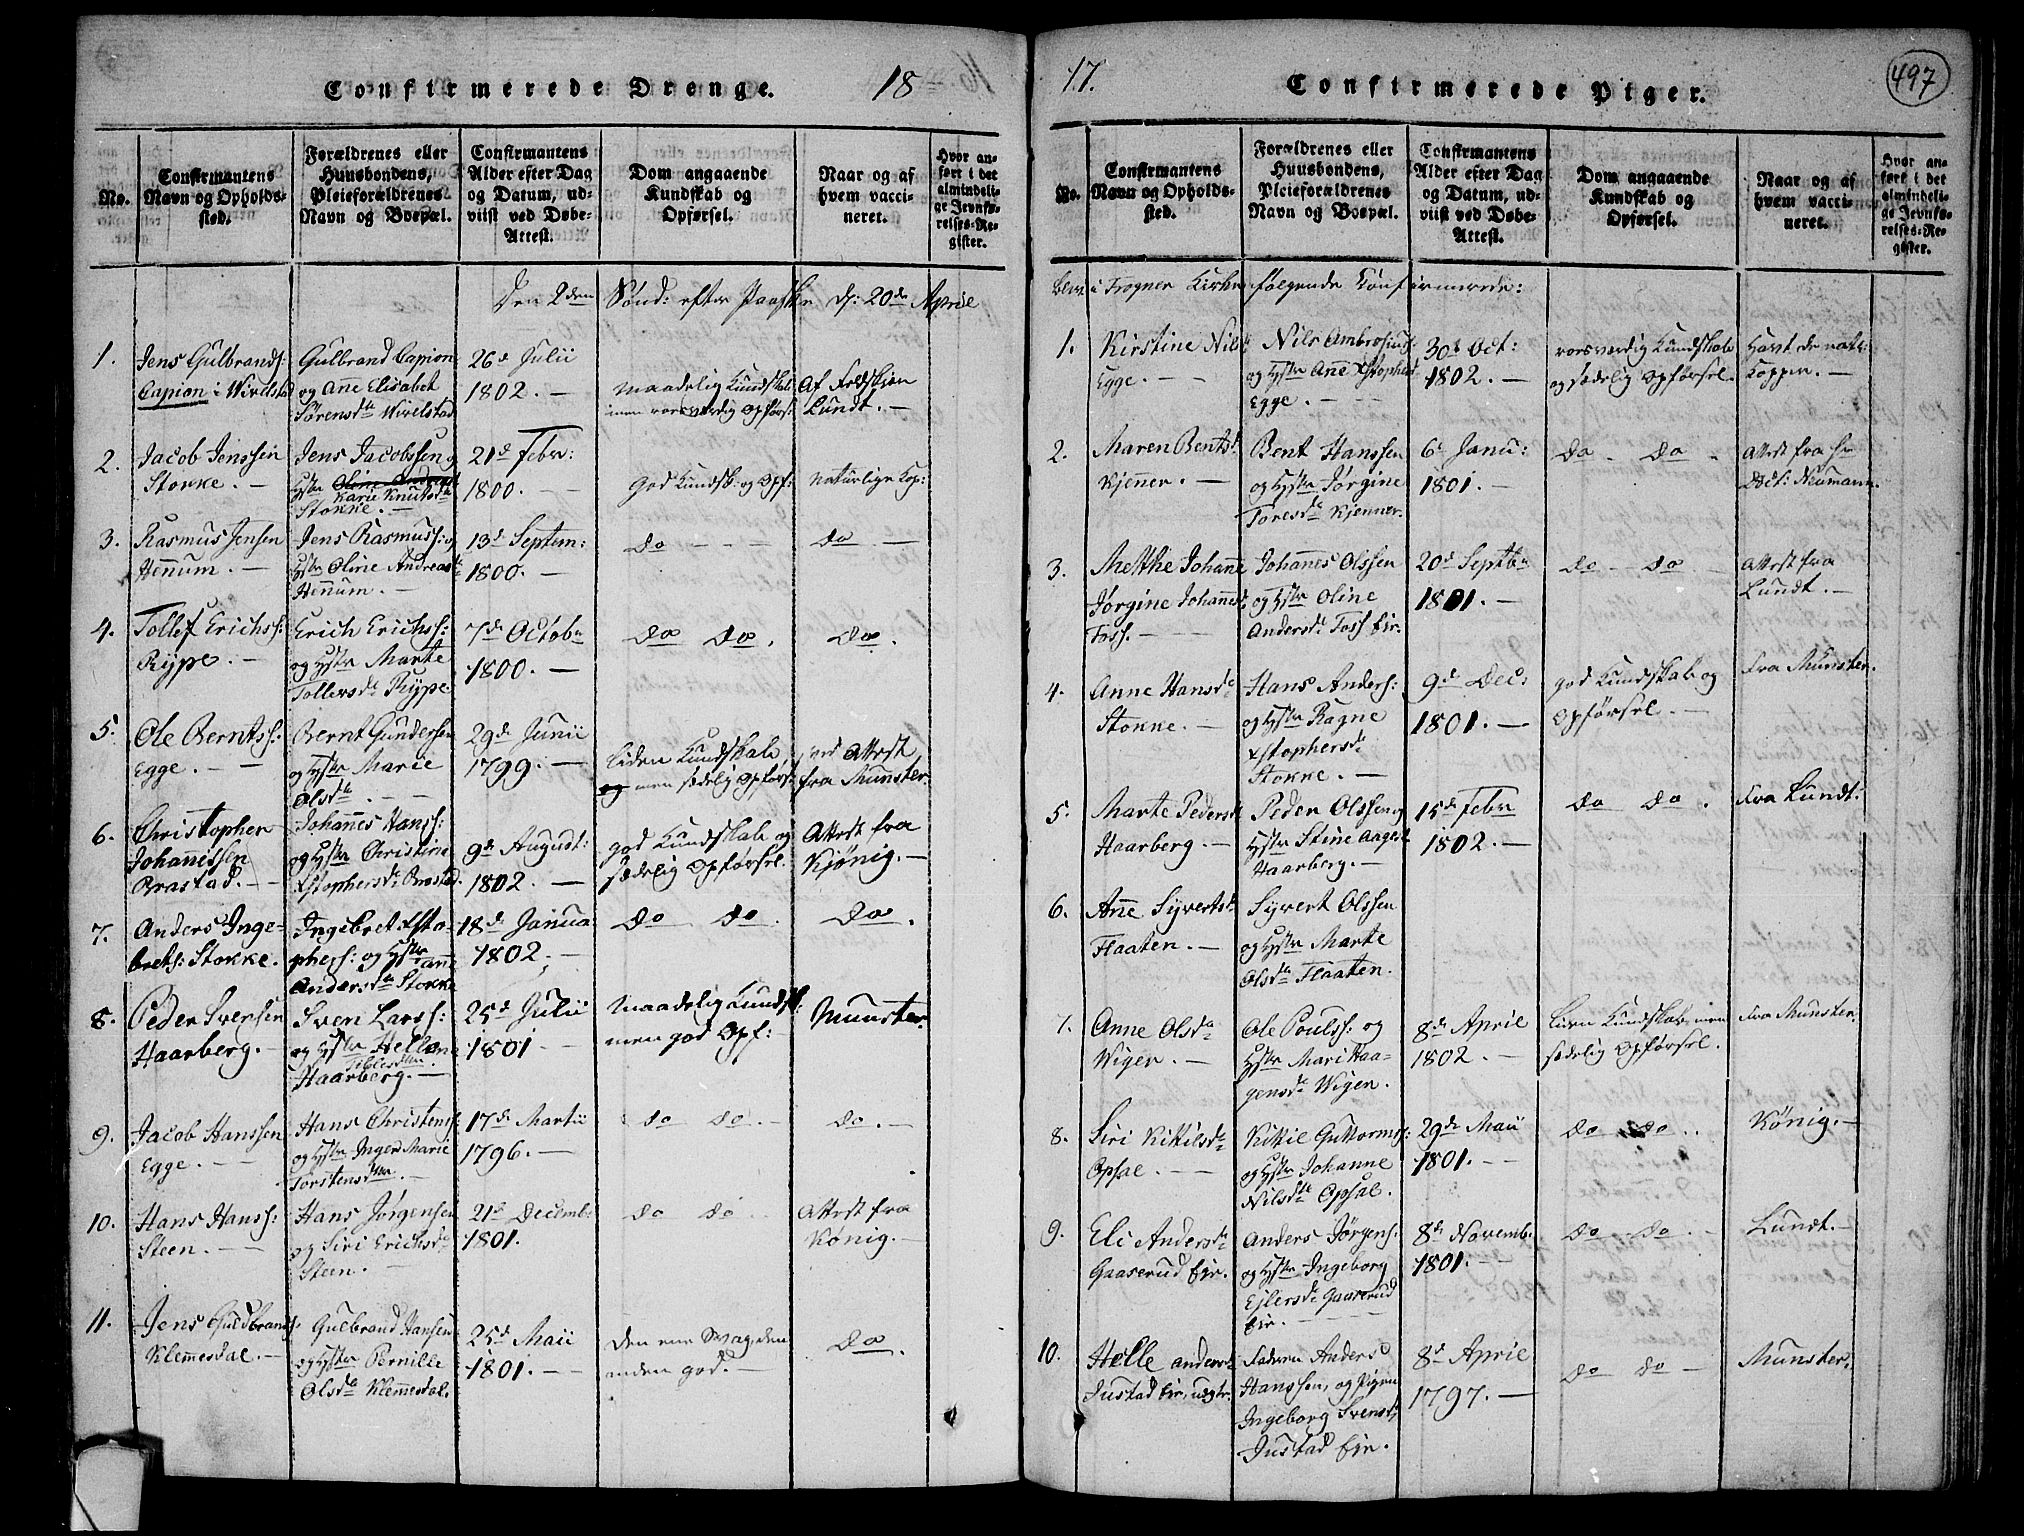 Confirmerede Drenge. 18
No.
Confirmantens
Navn og Opholds-
sted.
Forældrenes eller
Huusbondens,
Pleieforældrenes
Navn og Boepæl.
Confirmantens
Alder efter Dag
og Datum, ud-
viist ved Døbe-
Attest.
Dom angaaende
Kundskab og
Opførsel.
Naar og af
hvem vacci-
neret.
Hvor an-
ført i det
almindeli-
ge Jevnfø-
relses-Re-
gister.
Den 2den Sønd: efter Paaske d: 20de April
1.
Jens Gulbrands:
Capion i Wirelstad
Gulbrand Capion
og Ane Elisabet
Sørensda Wirelstad
26d Julii
1802. —
Maadelig Kundskab
men rosværdig Opførs:
Af Feldskjær
Lundt. —
2.
Jacob Jenssen
Stokke. —
Jens Jacobssen og
Hstr Oline Andreasd
Karie Knutsda
Stokke. —
21d Febr:
1800. —
God Kundsk: og Opf:
naturlige Kop:
3.
Rasmus Jensen
Henum. —
Jens Rasmuss: og
Hstr Oline Andreasda
Henum. —
13d Septem:
1800. —
do —
do —
4.
Tollef Erichss:
Rype. —
Erich Erichss:
og Hstr Marte
Tollevsda Rype.
7d Octob
1800. —
do do.
do.
5.
Ole Berntss:
Egge. —
Bernt Gundersen
og Hstr Marie
Olsda —
29d Junii
1799. —
Liden Kundskab,
og men sædelig Opførs:
ved Attest
fra Munster.
6.
Christopher
Johannissen
Brastad. —
Johannes Hanss:
og Hstr Christine
Xstophersda Brastad.
9d Augudt:
1802. —
god Kundskab og
sædelig Opførsel.
Attest fra
Kjønig. —
7.
Anders Inge-
brets: Stokke.
Ingebret Xsto-
phers: og Hstr Anne
Andersda Stokke
18d Janua
1802. —
do do.
do.
8.
Peder Svensen
Haarberg. —
Sven Larss:
og Hstr Hellene
Haarberg. —
25d Julii
1801 —
Maadelig Kundsk:
men god Opf:
Munster.
9.
Jacob Hanssen
Egge. —
Hans Christens:
og Hstr Inger Marie
Torstensda. —
17d Martii
1796. —
do do. —
do. —
10.
Hans Hanss:
Steen. —
Hans Jørgensen
og Siri Erichsda
Steen. —
21d Decemb:
1801.
do do —
Attest fra
Kønig. —
11.
Jens Guldbrands:
Klemesdal. —
Gulbrand Hansen
og Hstr Pernille
Olsda Klemmesdal.
25d Maii
1801. —
den ene svag, den
anden god. —
do.
17.
Confirmerede Piger.
497
No.
Confirmantens
Navn og Opholds-
sted.
Forældrenes eller
Huusbondens,
Pleieforældrenes
Navn og Boepæl.
Confirmantens
Alder efter Dag
og Datum, ud-
viist ved Døbe-
Attest.
Dom angaaende
Kundskab og
Opførsel.
Naar og af
hvem vacci-
neret.
Hvor an-
ført i det
almindeli-
ge Jevnfø-
relses-Re-
gister.
blev i Frogner Kirke følgende Confirmerede:
1.
Kirstine Nils
Egge. —
Nils Ambrosius
og Hstr Ane Xstophersd
Egge. —
30d Oct:
1802. —
rosværdig Kundskab
og sædelig Opførsel.
Havt de natl:
Kopper. —
2.
Maren Bentsd.
Kjenner. —
Bent Hanssen
og Hstr Jørgine
Toresda Kjenner.
6d Janu:
1801. —
do — do —
Attest fra Hr
Doct: Neumann.
3.
Methe Johanne
Jørgine Johannesd
Foss. —
Johannes Olssen
og Hstr Oline
Andersda Foss Eje.
20d Septbr
1801. —
do — do —
Attest fra
Lundt. —
4.
Anne Hansda
Stokke. —
Hans Anders:
og Hstr Ragne
Xstophersda
Stokke. —
9d Dec:
1801. —
god Kundskab og
Opførsel. —
Fra Munster.
5.
Marte Pedersd
Haarberg. —
Peder Olssen og
Hstr Stine Aagesd
Haarberg. —
15d Febr
1802. —
do do.
Fra Lundt.
6.
Ane Syvertsd
Flaaten. —
Syvert Olssen
og Hstr Marte
Olsda Flaaten.
7.
Anne Olsda
Wiger. —
Ole Pouls: og
Hstr Mari Haa-
gensda Wigen.
8d April
1802. —
Liden Kundskab, men
sædelig Opførsel.
Fra Munster.
8.
Siri Kittilsda
Opsal. —
Kittil Guttorms:
og Hstr Johanne
Nilsda Opsal.
29d Maii
1801. —
do do.
Kønig. —
9.
Eli Andersda
Gaaserud Eje.
Anders Jørgens:
og Hstr Ingeborg
Ejlersda Gaaserud
Eje. —
8d Novemb:
1801. —
do do —
Lundt. —
10.
Helle Andersd
Justad Eje, uægte.
Faderen Anders
Hanssen, og Pigen
Ingeborg Svensd,
Justad Eje.
8d April
1797. —
do do —
Munster.